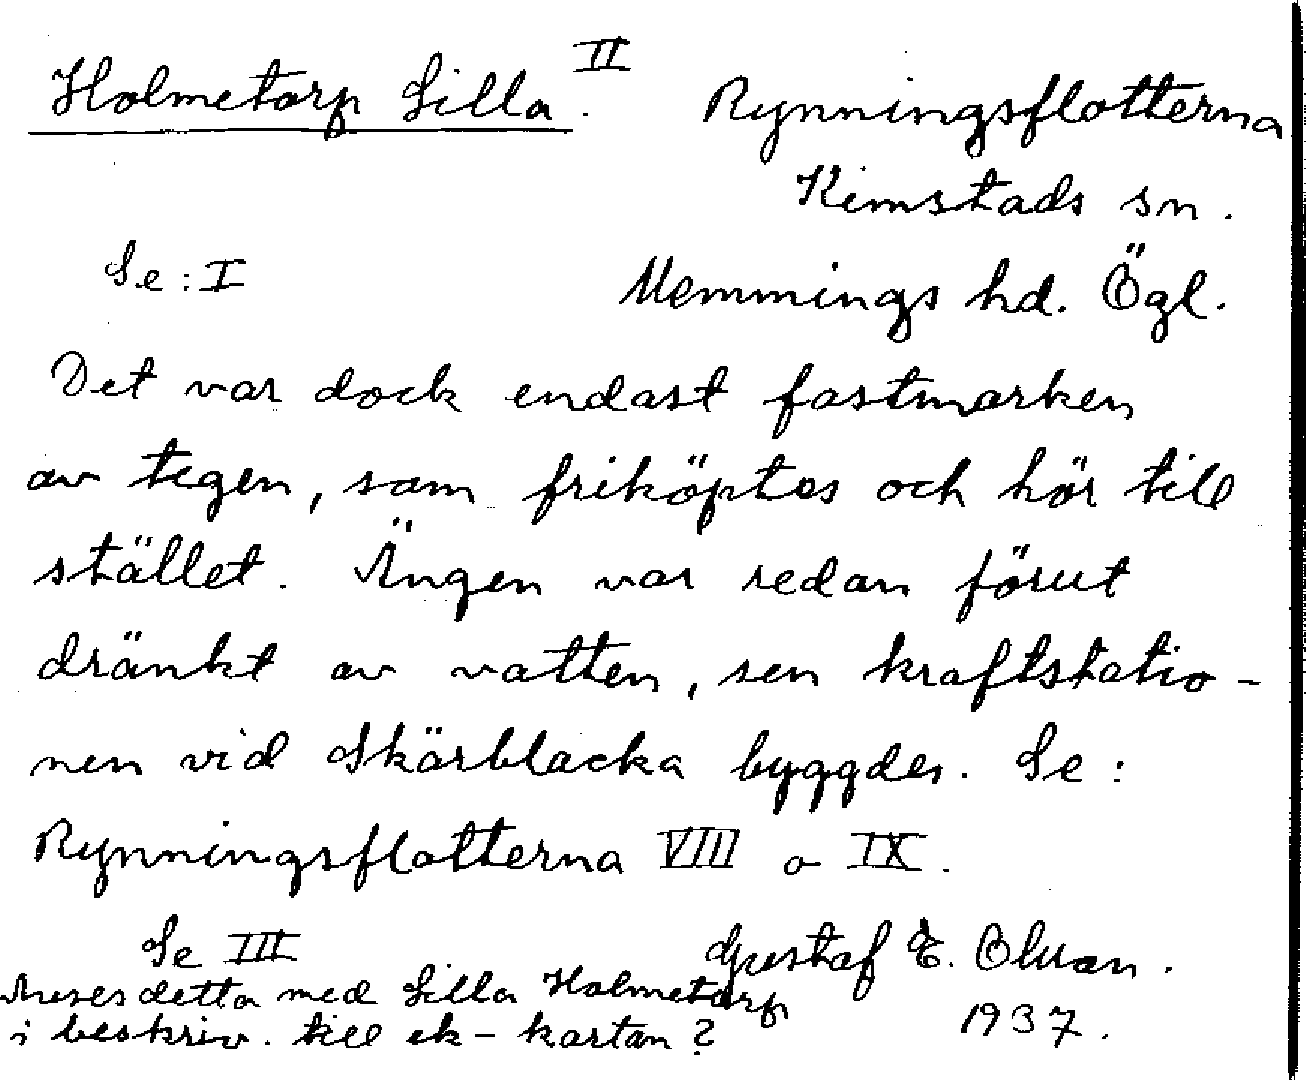 Holmetorp Lilla. II Rynningsflotterna
Kimstads sn.
Se: I Memmings hd. Ögl.
Det var dock endast fastmarken
av tegen, som friköptes och hör till
stället. Ängen var redan förut
dränkt av vatten, sen kraftstatio-
nen vid Skärblacka byggdes. Se:
Rynningsflotterna VIII o IX.
Se III Gustaf E. Olsson.
Avses detta med Lilla Holmetorp
i beskriv. till ek-kartan? 1937.